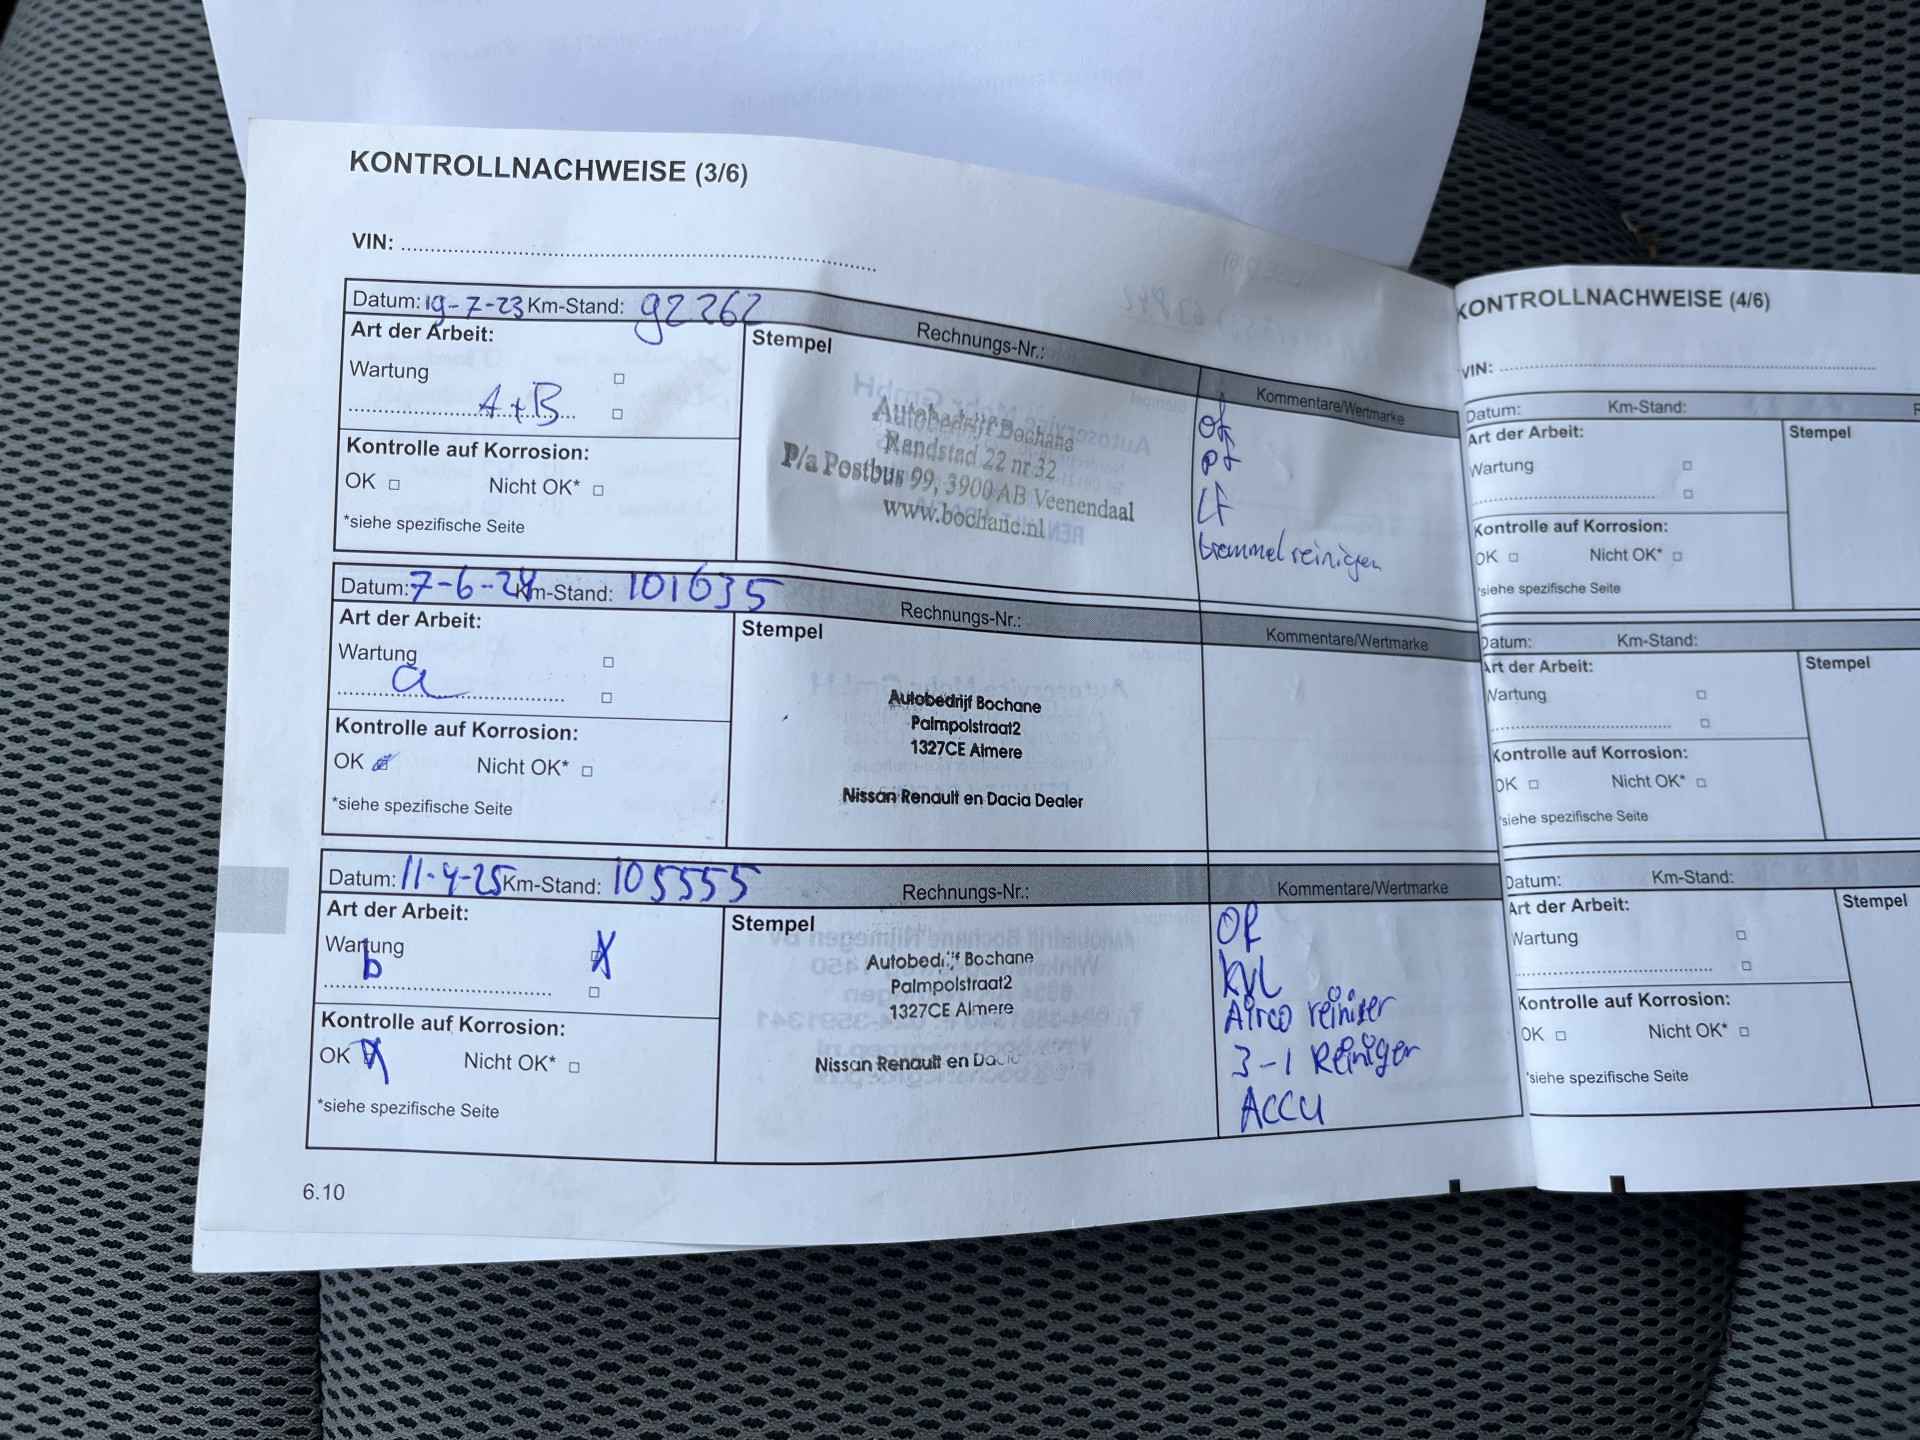 KONTROLLNACHWEISE (3/6)
VIN:
Datum: 19-7-23 Km-Stand: 92262
Rechnungs-Nr.:
Kommentare/Wertmarke
Art der Arbeit:
Wartung
A+B
Kontrolle auf Korrosion:
OK Nicht OK*
*siehe spezifische Seite
Stempel
Autobedrijf Bochane
Randstad 22 nr 32
P/a Postbus 99, 3900 AB Veenendaal
www.bochane.nl
of
pf
Lf
trommel reinigen
Datum: 7-6-24 Km-Stand: 101635
Rechnungs-Nr.:
Kommentare/Wertmarke
Art der Arbeit:
Wartung
a
Kontrolle auf Korrosion:
OK Nicht OK*
*siehe spezifische Seite
Stempel
Autobedrijf Bochane
Palmpolstraat2
1327CE Almere
Nissan Renault en Dacia Dealer
Datum: 11-4-25 Km-Stand: 105555
Rechnungs-Nr.:
Kommentare/Wertmarke
Art der Arbeit:
Wartung
b
Kontrolle auf Korrosion:
OK Nicht OK*
*siehe spezifische Seite
Stempel
Autobedrijf Bochane
Palmpolstraat2
1327CE Almere
Nissan Renault en Dacia
OF
KVL
Airco reiniger
3-1 Reiniger
ACCU
6.10
KONTROLLNACHWEISE (4/6)
VIN:
Datum: Km-Stand:
Art der Arbeit:
Wartung
Kontrolle auf Korrosion:
OK Nicht OK*
*siehe spezifische Seite
Stempel
Datum: Km-Stand:
Art der Arbeit:
Wartung
Kontrolle auf Korrosion:
OK Nicht OK*
*siehe spezifische Seite
Stempel
Datum: Km-Stand:
Art der Arbeit:
Wartung
Kontrolle auf Korrosion:
OK Nicht OK*
*siehe spezifische Seite
Stempel